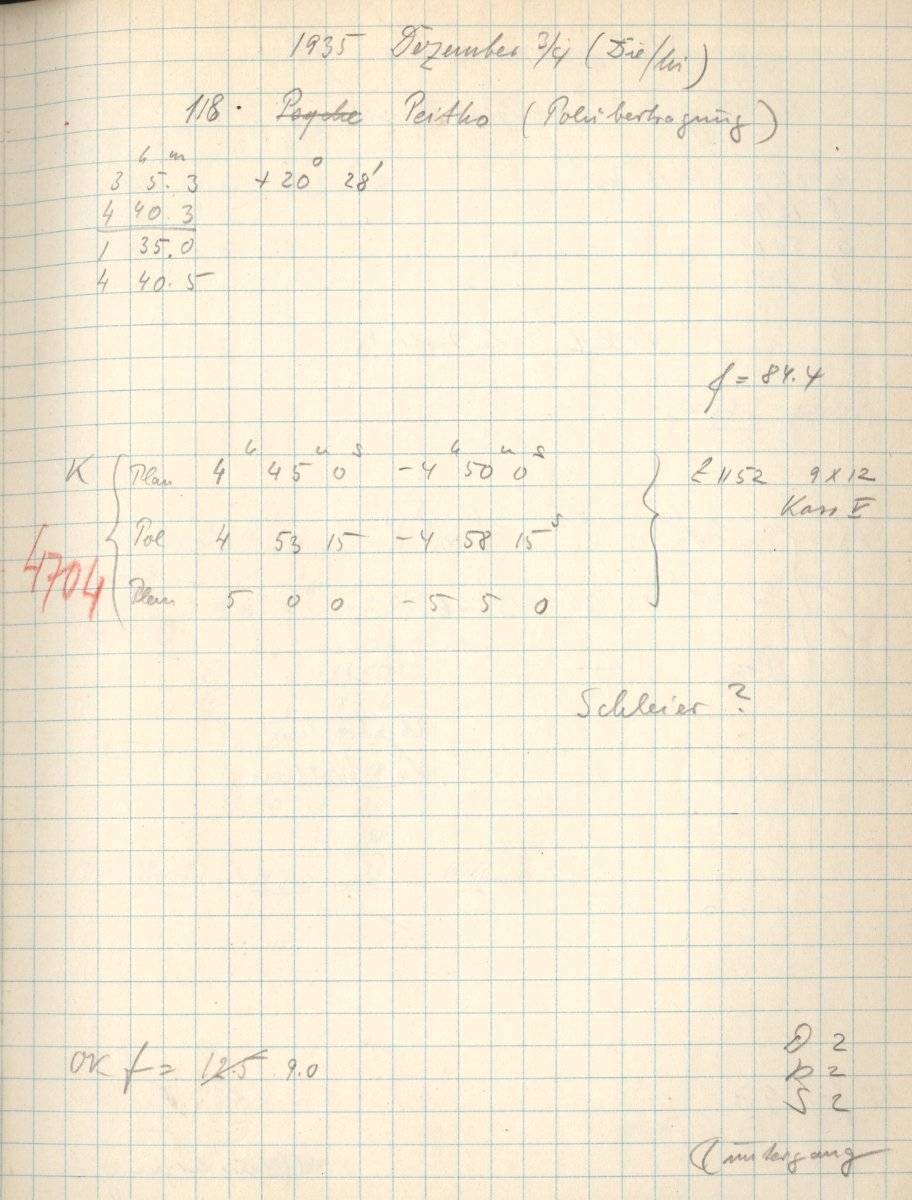 1935 Dezember 3/4 (Die/Mi)
118. Psyche Peitho (Polübertragung)
h m
3 5.3 +20° 28'
4 40.3
1 35.0
4 40.5
f = 84.4
K Plan 4h 45m 0s -4h 50m 0s Z 1152 9x12
Kass V
Pol 4 53 15 -4 58 15s
4704
Plan 5 0 0 -5 5 0
Schleier ?
OK f = 12.5 9.0
D 2
R 2
S 2
untergang